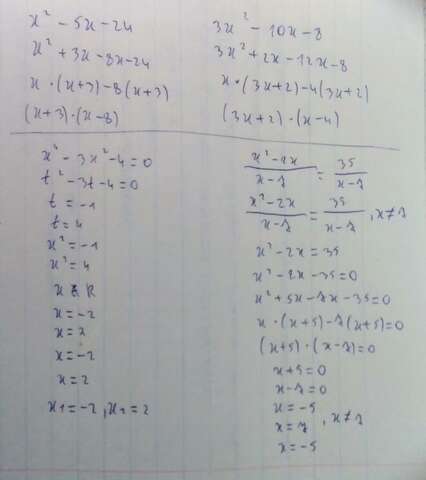 x² - 5x - 24
x² + 3x - 8x - 24
x · (x+3) - 8(x+3)
(x+3) · (x-8)
3x² - 10x - 8
3x² + 2x - 12x - 8
x · (3x+2) - 4(3x+2)
(3x+2) · (x-4)
x⁴ - 3x² - 4 = 0
t² - 3t - 4 = 0
t = -1
t = 4
x² = -1
x² = 4
x ∉ R
x = -2
x = 2
x = -2
x = 2
x₁ = -2, x₂ = 2
(x² - 2x)/(x - 7) = 35/(x - 7)
(x² - 2x)/(x - 7) = 35/(x - 7), x ≠ 7
x² - 2x = 35
x² - 2x - 35 = 0
x² + 5x - 7x - 35 = 0
x · (x+5) - 7(x+5) = 0
(x+5) · (x-7) = 0
x + 5 = 0
x - 7 = 0
x = -5
x = 7, x ≠ 7
x = -5